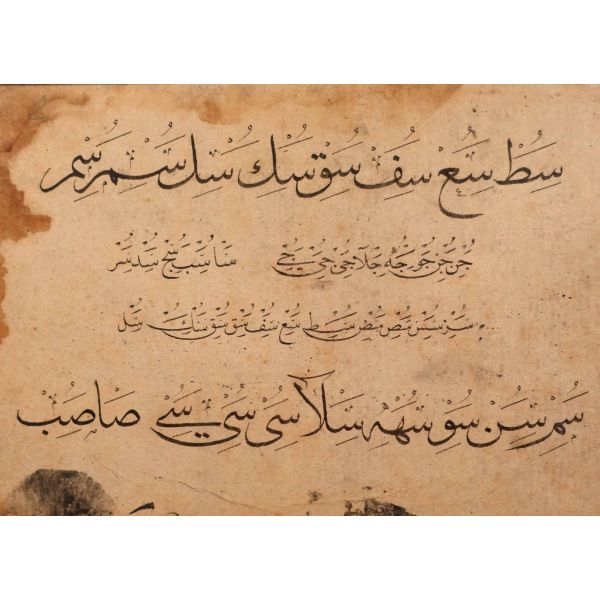 سط سع سف سق سك سل سم سم
جن جن جو جه جلا جى جى جے سا سب سج سد سر
سز سس سص سض سط سع سف سق سق سك سل
سم سن سو سه سلا سى سى سے صا صب